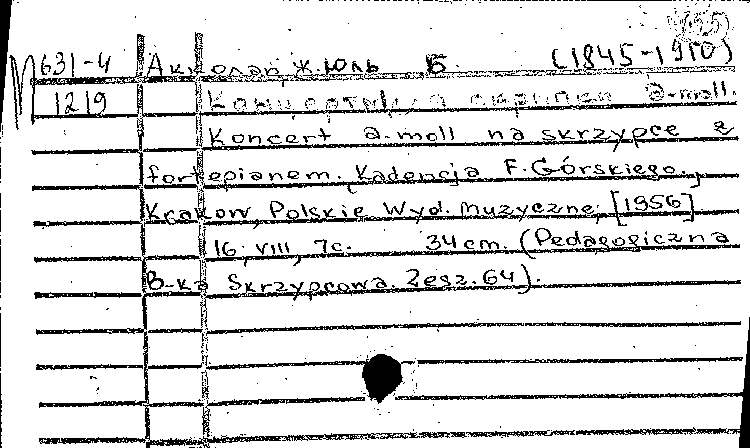 М631-4 Акколаи, Ж. Юль Б. (1845-1910)
1219 скрипки a-moll.
Koncert a-moll na skrzypce z
fortepianem. Kadencja F. Górskiego.
Krakow, Polskie Wyd. Muzyczne, [1956]
16; VIII, 7c. 34 cm. (Pedagogiczna
B-ka Skrzypcowa. Zesz. 64).